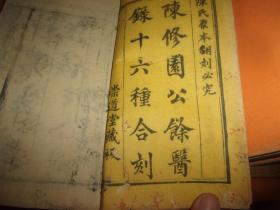 陳氏家本翻刻必究
陳修園公餘醫
錄十六種合刻
崇道堂藏板